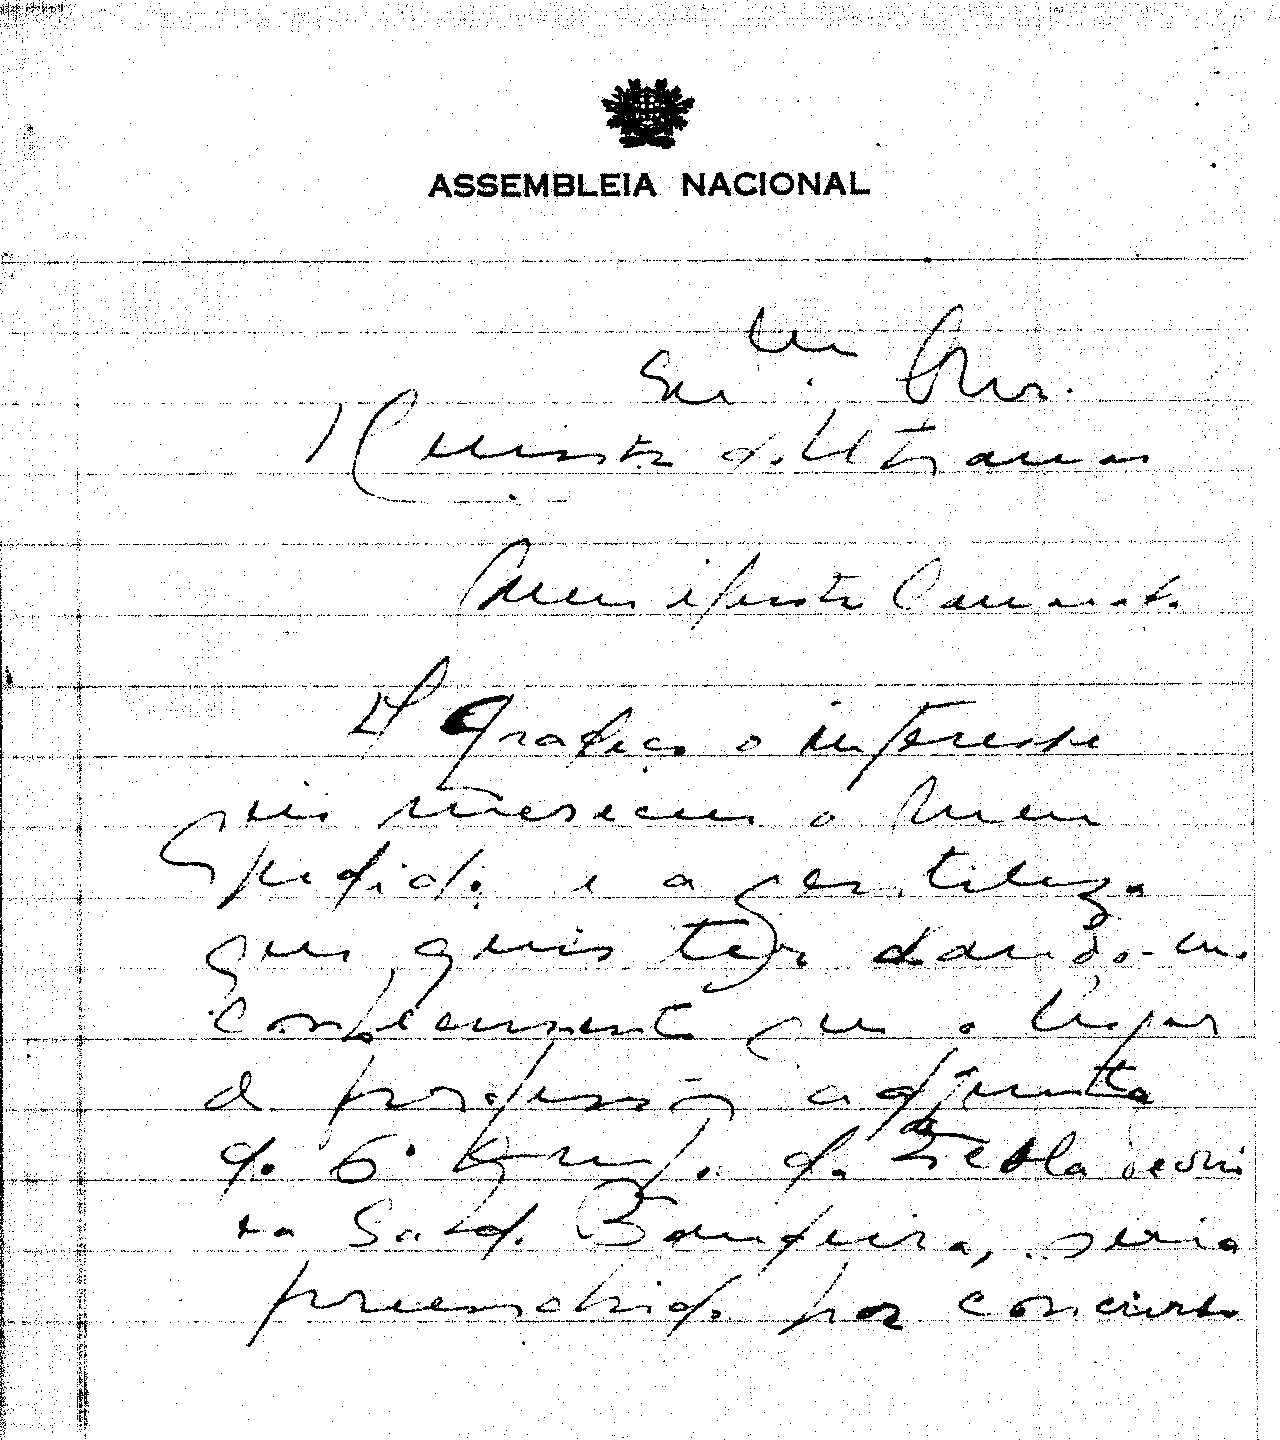 ASSEMBLEIA NACIONAL
Exmo. Snr.
Ministro do Ultramar
Meu ilustre Camarada
Agradeço o interesse
que mereceu o meu
pedido e a gentileza
que quis ter dando-me
conhecimento que o lugar
de professor adjunto
do 6º Grupo da de Escola
Sá da Bandeira, seria
preenchido por concurso